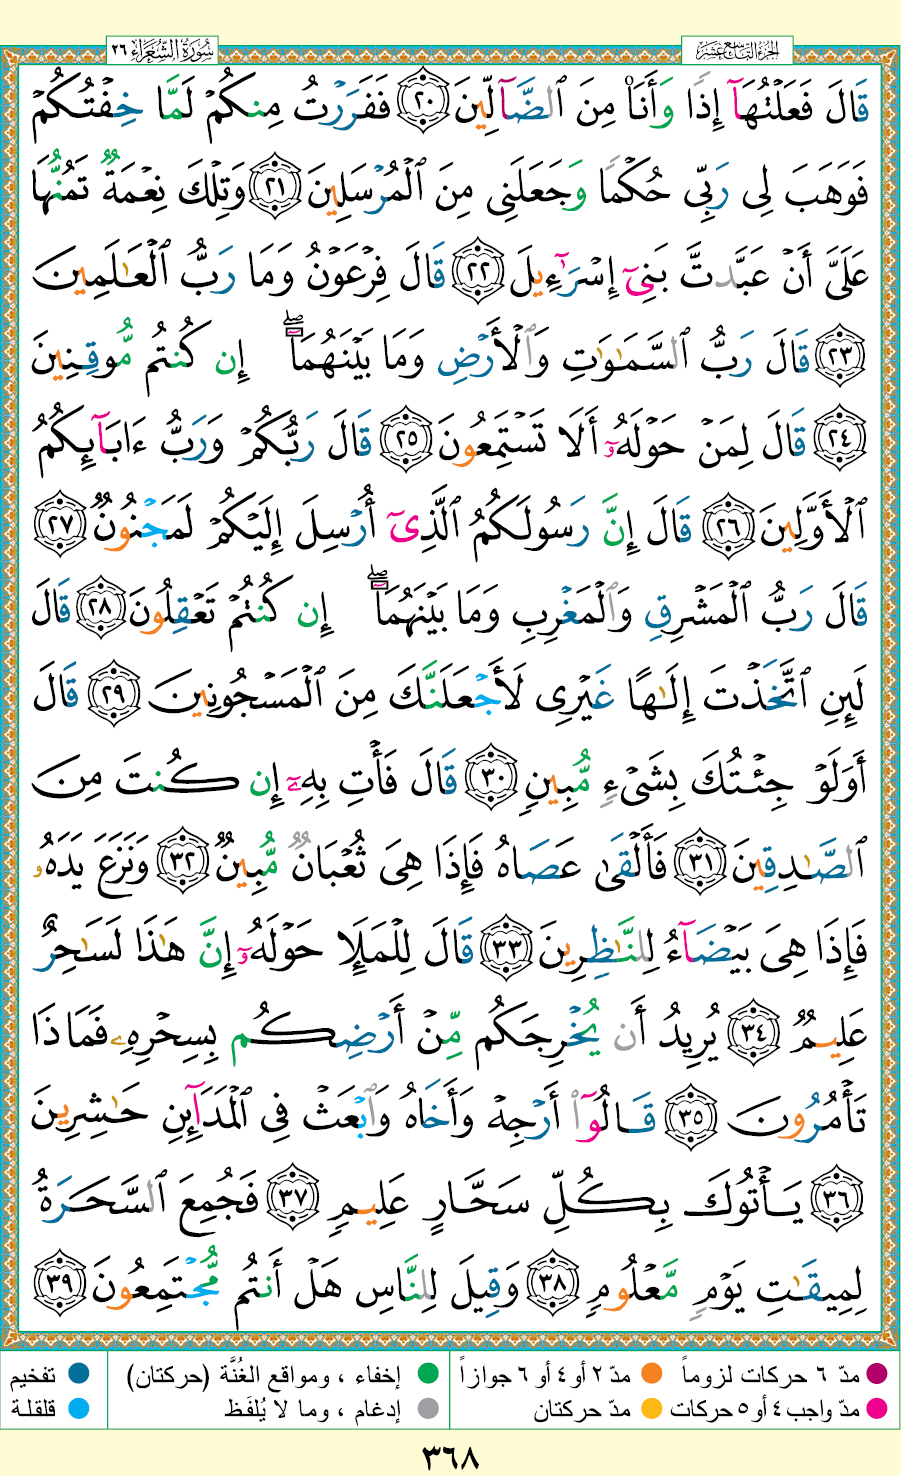 سُورَةُ الشُّعَرَاءِ ٢٦
الجزء التاسع عشر
قَالَ فَعَلْتُهَآ إِذًا وَأَنَا۠ مِنَ ٱلضَّآلِّينَ ٢٠ فَفَرَرْتُ مِنكُمْ لَمَّا خِفْتُكُمْ
فَوَهَبَ لِى رَبِّى حُكْمًا وَجَعَلَنِى مِنَ ٱلْمُرْسَلِينَ ٢١ وَتِلْكَ نِعْمَةٌ تَمُنُّهَا
عَلَىَّ أَنْ عَبَّدتَّ بَنِىٓ إِسْرَٰٓءِيلَ ٢٢ قَالَ فِرْعَوْنُ وَمَا رَبُّ ٱلْعَٰلَمِينَ
٢٣ قَالَ رَبُّ ٱلسَّمَٰوَٰتِ وَٱلْأَرْضِ وَمَا بَيْنَهُمَآ ۖ إِن كُنتُم مُّوقِنِينَ
٢٤ قَالَ لِمَنْ حَوْلَهُۥٓ أَلَا تَسْتَمِعُونَ ٢٥ قَالَ رَبُّكُمْ وَرَبُّ ءَابَآئِكُمُ
ٱلْأَوَّلِينَ ٢٦ قَالَ إِنَّ رَسُولَكُمُ ٱلَّذِىٓ أُرْسِلَ إِلَيْكُمْ لَمَجْنُونٌ ٢٧
قَالَ رَبُّ ٱلْمَشْرِقِ وَٱلْمَغْرِبِ وَمَا بَيْنَهُمَآ ۖ إِن كُنتُمْ تَعْقِلُونَ ٢٨ قَالَ
لَئِنِ ٱتَّخَذْتَ إِلَٰهًا غَيْرِى لَأَجْعَلَنَّكَ مِنَ ٱلْمَسْجُونِينَ ٢٩ قَالَ
أَوَلَوْ جِئْتُكَ بِشَىْءٍ مُّبِينٍ ٣٠ قَالَ فَأْتِ بِهِۦٓ إِن كُنتَ مِنَ
ٱلصَّٰدِقِينَ ٣١ فَأَلْقَىٰ عَصَاهُ فَإِذَا هِىَ ثُعْبَانٌ مُّبِينٌ ٣٢ وَنَزَعَ يَدَهُۥ
فَإِذَا هِىَ بَيْضَآءُ لِلنَّٰظِرِينَ ٣٣ قَالَ لِلْمَلَإِ حَوْلَهُۥٓ إِنَّ هَٰذَا لَسَٰحِرٌ
عَلِيمٌ ٣٤ يُرِيدُ أَن يُخْرِجَكُم مِّنْ أَرْضِكُم بِسِحْرِهِۦ فَمَاذَا
تَأْمُرُونَ ٣٥ قَالُوٓا۟ أَرْجِهْ وَأَخَاهُ وَٱبْعَثْ فِى ٱلْمَدَآئِنِ حَٰشِرِينَ
٣٦ يَأْتُوكَ بِكُلِّ سَحَّارٍ عَلِيمٍ ٣٧ فَجُمِعَ ٱلسَّحَرَةُ
لِمِيقَٰتِ يَوْمٍ مَّعْلُومٍ ٣٨ وَقِيلَ لِلنَّاسِ هَلْ أَنتُم مُّجْتَمِعُونَ ٣٩
مدّ ٦ حركات لزوماً مدّ ٢ أو ٤ أو ٦ جوازاً إخفاء ، ومواقع الغُنَّة (حركتان) تفخيم
مدّ واجب ٤ أو ٥ حركات مدّ حركتان إدغام ، وما لا يُلفَظ قلقلة
٣٦٨